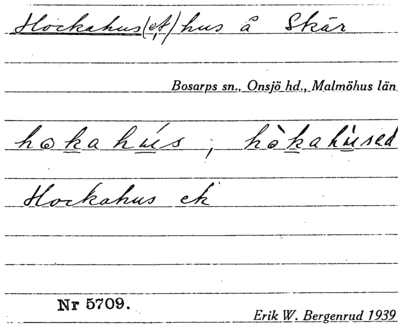 Hockahus(et)hus å Skär
Bosarps sn., Onsjö hd., Malmöhus län
hokahús, hòkahùsed
Hockahus ek
Nr 5709.
Erik W. Bergenrud 1939